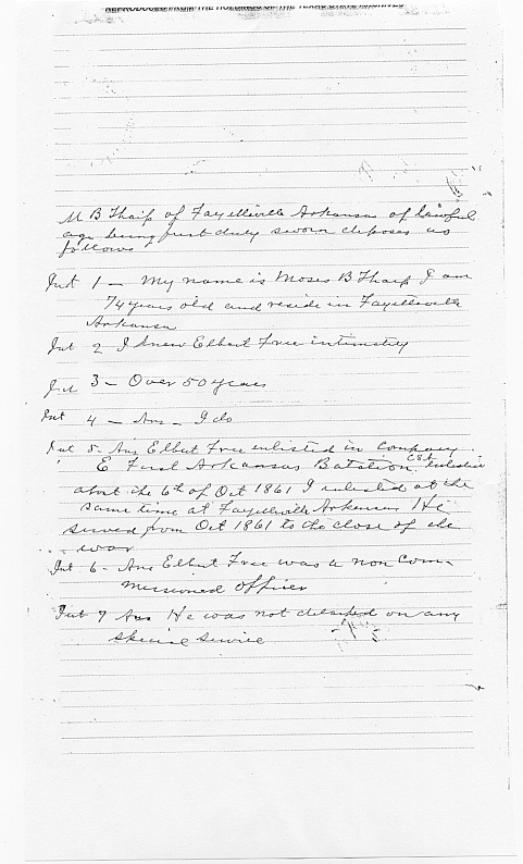 REPRODUCED FROM THE HOLDINGS OF THE TEXAS STATE ARCHIVES
M B Tharp of Fayetteville Arkansas of lawful
age being first duly sworn deposes as
follows
Int 1 — My name is Moses B Tharp I am
74 years old and reside in Fayetteville
Arkansas
Int 2 I knew Elbert Free intimately
Int 3 - Over 50 years
Int 4 - Ans - I do
Int 5 - Ans Elbert Free enlisted in Company
E First Arkansas Batalion CSA
about the 6th of Oct 1861 I enlisted at the
same time at Fayetteville Arkansas He
served from Oct 1861 to the close of the
war
Int 6 - Ans Elbert Free was a non Com-
missioned officer
Int 7 Ans He was not detailed on any
special service